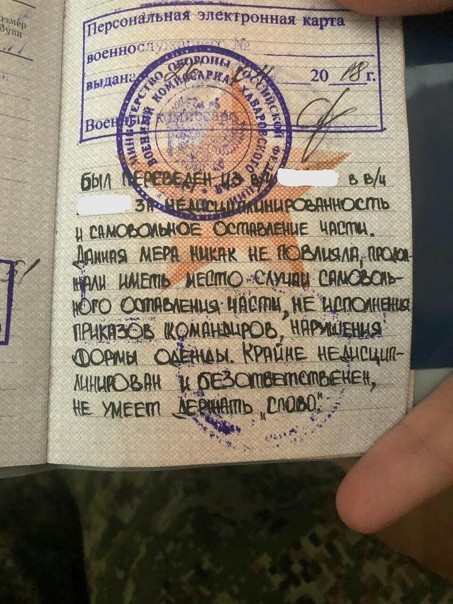 Персональная электронная карта
военнослужащего №
выдана 20 18 г.
Военный комиссар
МИНИСТЕРСТВО ОБОРОНЫ РОССИЙСКОЙ ФЕДЕРАЦИИ
ВОЕННЫЙ КОМИССАРИАТ ХАБАРОВСКОГО
БЫЛ ПЕРЕВЕДЕН ИЗ В/Ч В В/Ч
ЗА НЕДИСЦИПЛИНИРОВАННОСТЬ
И САМОВОЛЬНОЕ ОСТАВЛЕНИЕ ЧАСТИ.
ДАННАЯ МЕРА НИКАК НЕ ПОВЛИЯЛА, ПРОДОЛ-
ЖАЛИ ИМЕТЬ МЕСТО СЛУЧАИ САМОВОЛЬ-
НОГО ОСТАВЛЕНИЯ ЧАСТИ, НЕ ИСПОЛНЕНИЯ
ПРИКАЗОВ КОМАНДИРОВ, НАРУШЕНИЯ
ФОРМЫ ОДЕЖДЫ. КРАЙНЕ НЕДИСЦИП-
ЛИНИРОВАН И БЕЗОТВЕТСТВЕНЕН,
НЕ УМЕЕТ ДЕРЖАТЬ „СЛОВО".